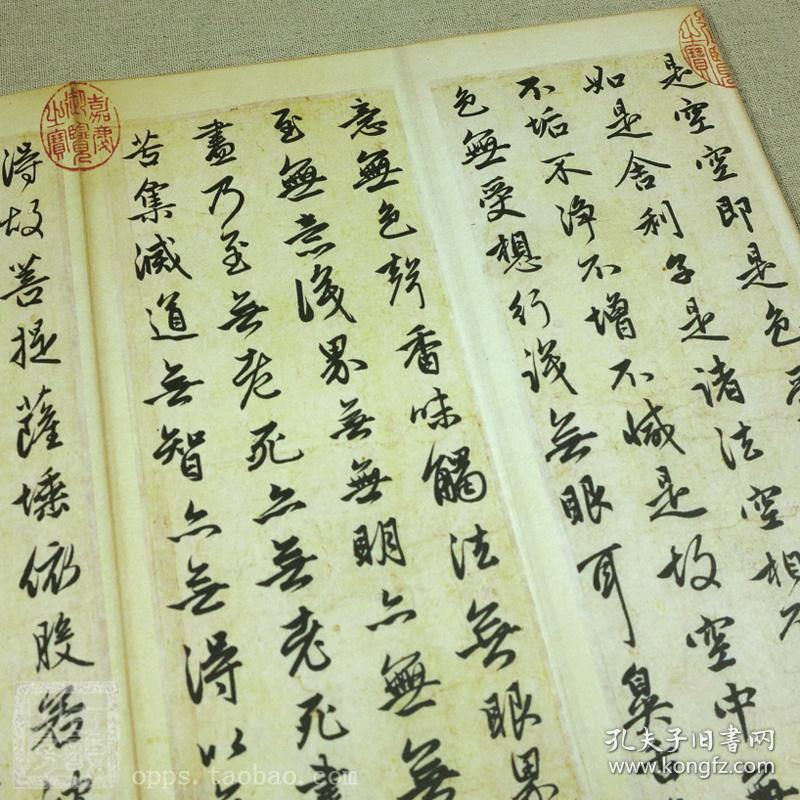 是空空即是色
如是舍利子是諸法空相不
不垢不淨不增不減是故空中無
色無受想行識無眼耳鼻舌
意無色聲香味觸法無眼界
至無意識界無無明亦無無
盡乃至無老死亦無老死盡
苦集滅道無智亦無得以無
得故菩提薩埵依般若
嘉慶御覽之寶
opps.taobao.com
孔夫子旧书网
www.kongfz.com